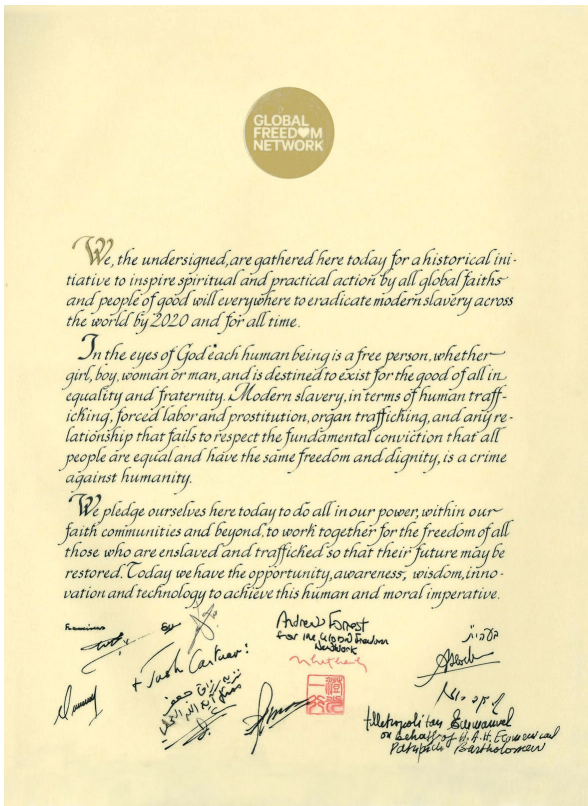 GLOBAL
FREED♥M
NETWORK
We, the undersigned, are gathered here today for a historical ini-
tiative to inspire spiritual and practical action by all global faiths
and people of good will everywhere to eradicate modern slavery across
the world by 2020 and for all time.
In the eyes of God each human being is a free person, whether
girl, boy, woman or man, and is destined to exist for the good of all in
equality and fraternity. Modern slavery, in terms of human traff-
icking, forced labor and prostitution, organ trafficking, and any re-
lationship that fails to respect the fundamental conviction that all
people are equal and have the same freedom and dignity, is a crime
against humanity.
We pledge ourselves here today to do all in our power, within our
faith communities and beyond, to work together for the freedom of all
those who are enslaved and trafficked so that their future may be
restored. Today we have the opportunity, awareness, wisdom, inno-
vation and technology to achieve this human and moral imperative.
Franciscus
Andrew Forrest
for the Global Freedom
Network
Metropolitan Emmanuel
on behalf of H.A.H. Ecumenical
Patriarch Bartholomew